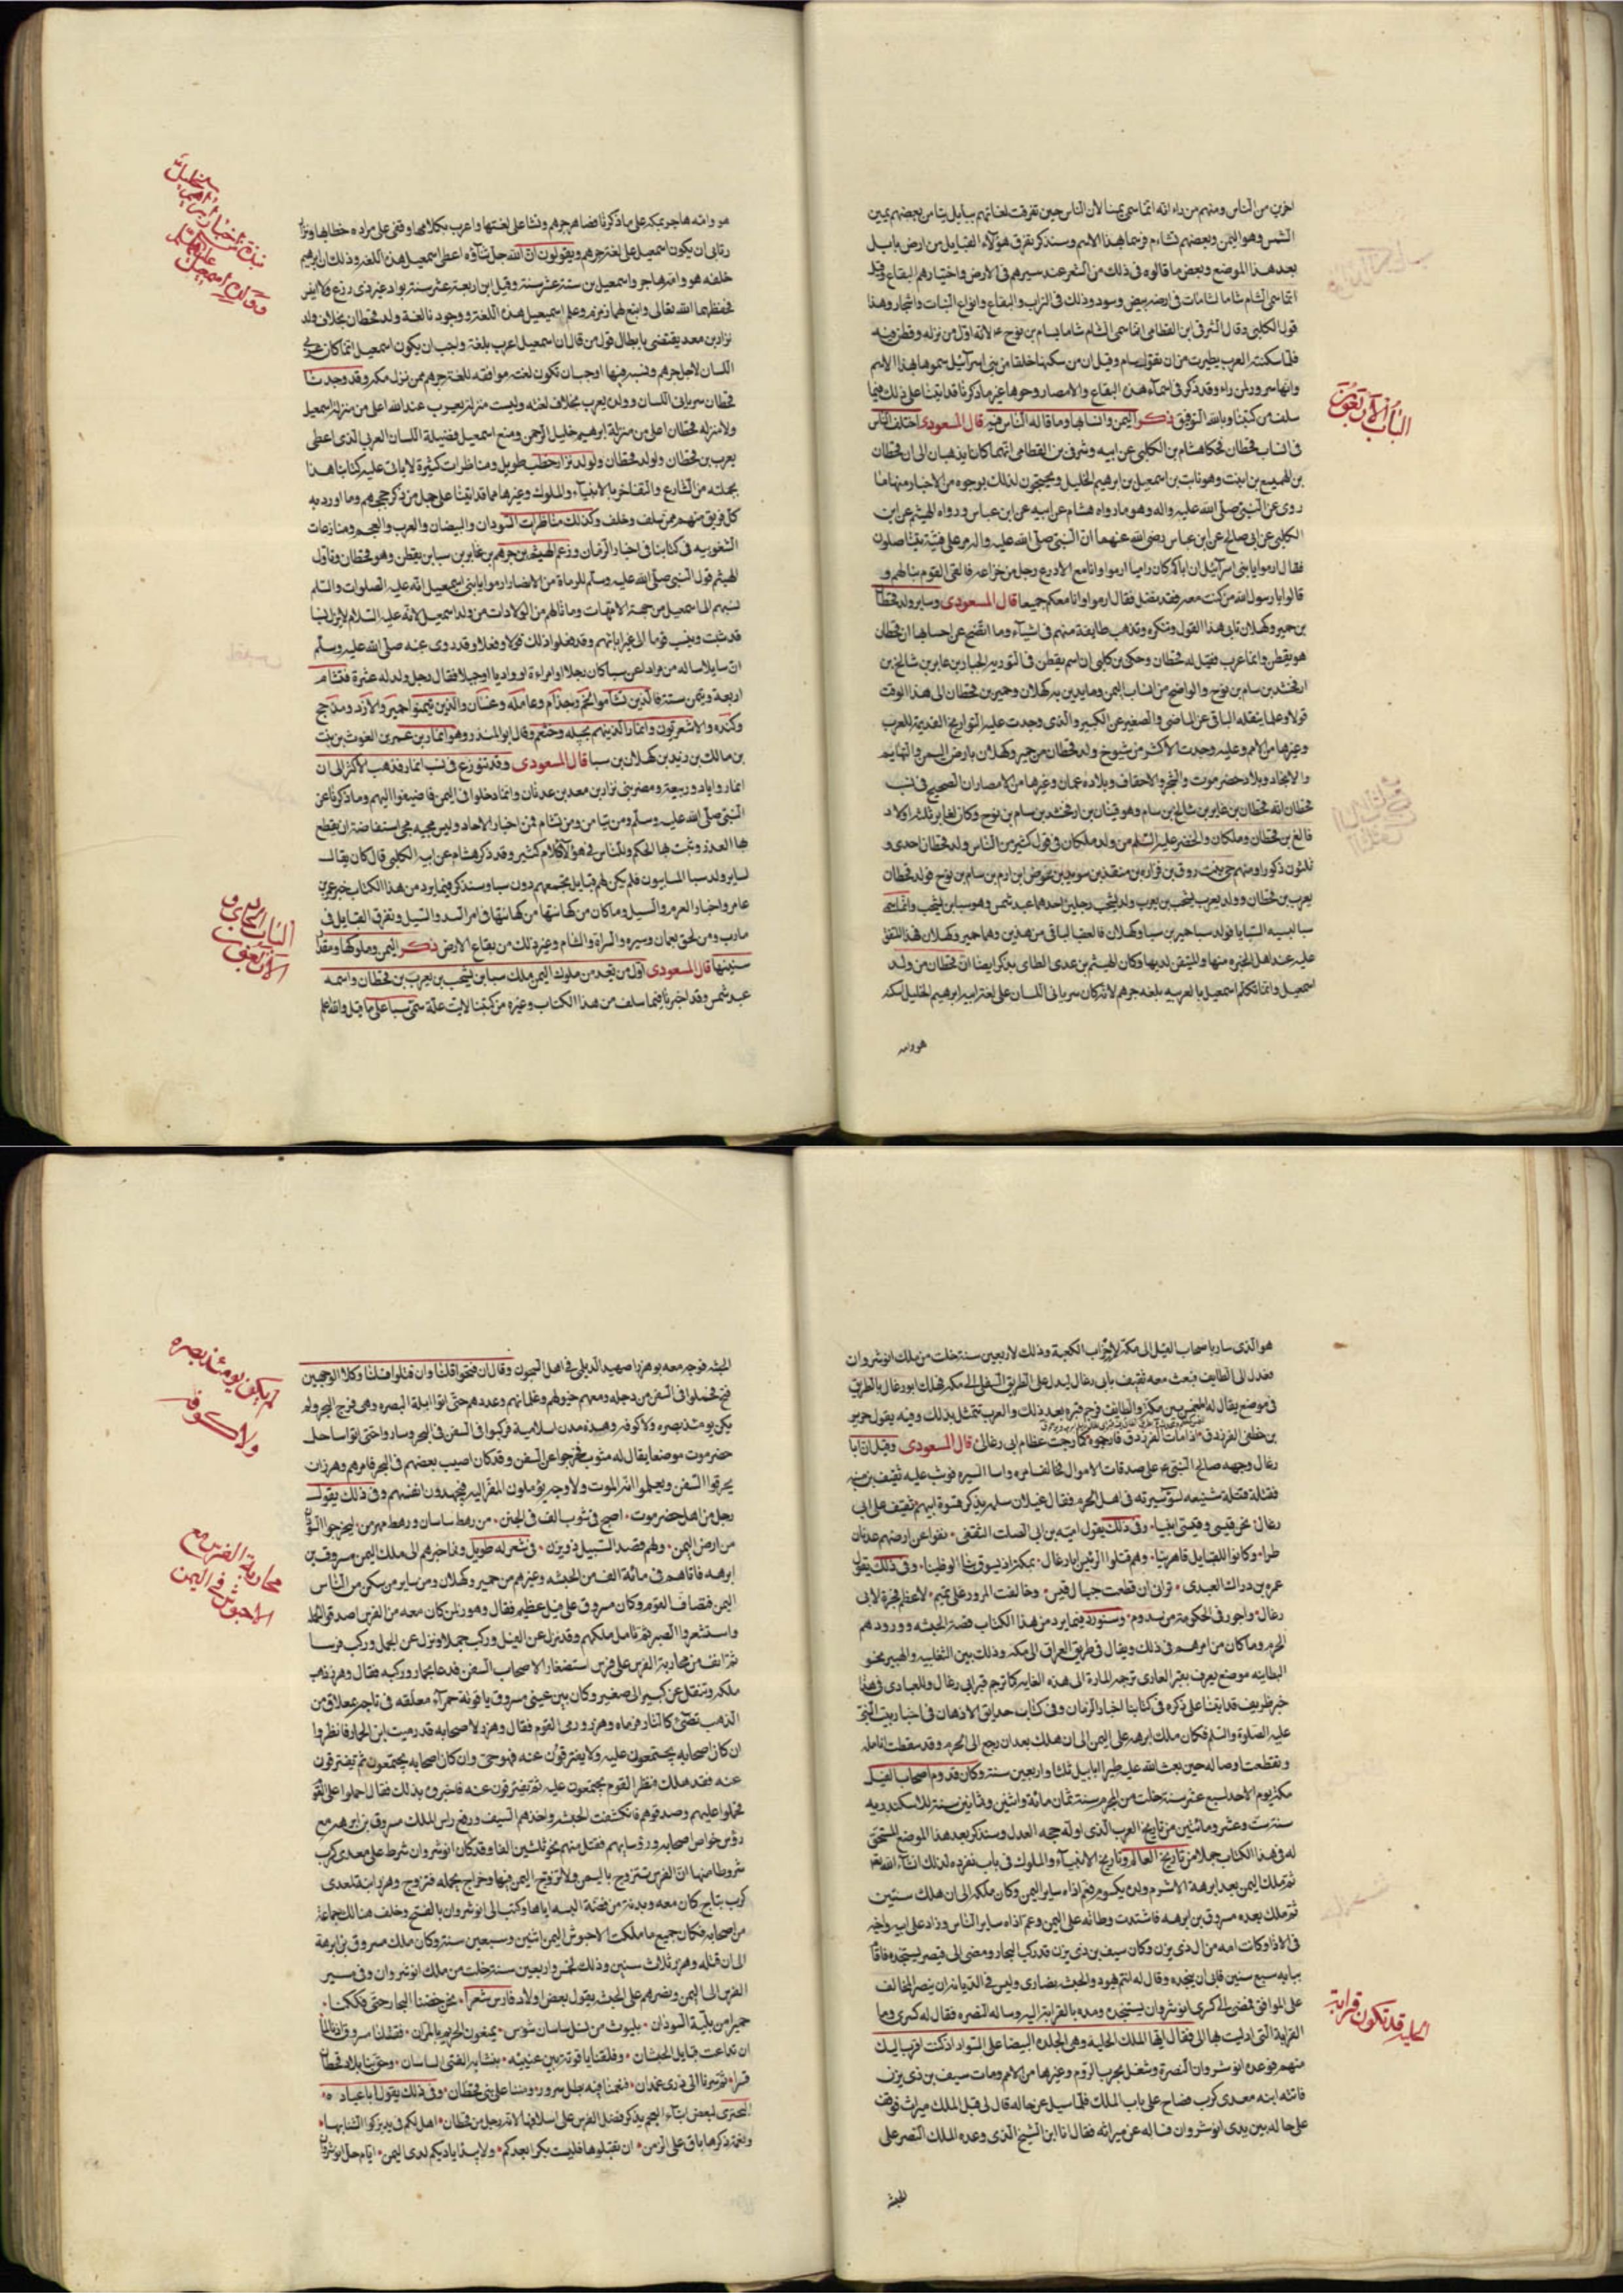 اخرين من الناس ومنهم من راء انه انما سمى يمينا لان الناس حين تفرقت لغاتهم ببابل تيامن بعضهم يمين
الشمس وهو اليمن وبعضهم تشاءم فوسما هذا الاسم وسنذكر تفرق هولاء القبايل من ارض بابل
بعد هذا الموضع وبعض ما قالوه فى ذلك من الشعر عند سيرهم فى الارض واختيارهم البقاع وقيل
انما سمى الشام شاما لشامات فى ارضه بيض وسود وذلك فى التراب والبقاع وانواع النبات والاشجار وهذا
قول الكلبى وقال الشرقى ابن القطامى انما سمى الشام شاما بسام بن نوح لانه اول من نزله وقطن فيه
فلما سكنته العرب تطيرت من ان تقول سام وقيل ان من سكنها خلقا من بنى اسرآئيل سموها بهذا الاسم
وقد ذكر فى اسمآء هذه البقاع والامصار وجوها غير ما ذكرنا قد اتينا على ذلك فيما
سلف من كتبنا وبالله التوفيق ذكر اليمن وانسابها وما قاله الناس فيه قال المسعودى اختلف الناس
الباب الآربعون
فى انساب قحطان فحكا هشام بن الكلبى عن ابيه وشرقى بن القطامى انهما كانا يذهبان الى ان قحطان
بن الهميسع بن نابت وهو نابت بن اسمعيل بن ابرهيم الخليل ويحتجون لذلك بوجوه من الاخبار منها ما
روى عن النبى صلى الله عليه واله وهو ما رواه هشام عن ابيه عن ابن عباس ورواه الهيثم عن ابن
الكلبى عن ابى صالح عن ابن عباس رضى الله عنهما ان النبى صلى الله عليه واله مر على فتية يتناضلون
فقال ارموا يا بنى اسرآئيل ان اباكم كان راميا ارموا وانا مع الادرع رجل من خزاعه فالقى القوم نبالهم و
قالوا يا رسول الله من كنت معه فقد نضل فقال ارموا وانا معكم جميعا قال المسعودى وساير ولد قحطان
بن حمير وكهلان تابى هذا القول وتنكره وتذهب طايفة منهم فى اشيآء وما اتضح عن احسابها ان قحطان
هو يقطن وانما عرب فقيل له قحطان وحكى بن كلبى ان اسم يقطن فى التوريه الجبار بن عابر بن شالخ بن
ارفخشد بن سام بن نوح والواضح من انساب اليمن وما يدين به كهلان وحمير بن قحطان الى هذا الوقت
قولا وعلما ينقله الباقى عن الماضى والصغير عن الكبير والذى وجدت عليه التواريخ القديمه للعرب
وغيرها من الامم وعليه وجدت الاكثر من شيوخ ولد قحطان من حمير وكهلان بارض اليمن والتهايم
والانجاد وبلاد حضرموت والشحر والاحقاف وبلاد عمان وغيرها من الامصار ان الصحيح فى نسب
قحطان انه قحطان بن عابر بن شالخ بن سام وهو قينان بن ارفخشد بن سام بن نوح وكان لعابر ثلثه اولاد
فالغ بن قحطان وملكان والخضر عليه السلم من ولد ملكان فى قول كثير من الناس ولد قحطان احدى و
ثلثون ذكورا وامهم حى بنت روق بن فزاره بن منقذ بن سويد بن عوض ابن ارم بن سام بن نوح فولد قحطان
يعرب بن قحطان وولد يعرب يشجب بن يعرب ولد يشجب رجلين احدهما عبد شمس وهو سبا بن يشجب وانما سمى
سبا لسبيه السبايا فولد سبا حمير بن سبا وكهلان فالعقب الباقى من هذين وهما حمير وكهلان فهذا المتفق
عليه عند اهل الخبره منها والمتيقن لديها وكان الهيثم بن عدى الطاى يذكر ايضا ان قحطان من ولد
اسمعيل وانما تكلم اسمعيل بالعربيه بلغه جرهم لانه كان سريانى اللسان على لغة ابيه ابرهيم الخليل سكنه
هو وامه
هو وامه هاجر بمكه على ما ذكرنا فصاهر جرهم ونشا على لغتها واعرب بكلامها وقفى على مراده خطابها ونزار
نبذة من اخبار ابراهيم
الخليل
وولده اسمعيل
تابى ان يكون اسمعيل على لغة جرهم ويقولون ان الله جل ثناؤه اعطى اسمعيل هذه اللغه وذلك ان ابرهيم
خلفه هو وامه هاجر واسمعيل بن ستة عشر سنة وقيل ابن اربعة عشر سنة بواد غير ذى زرع ولا انيس
فحفظهما الله تعالى وانبع لهما زمزم وعلم اسمعيل هذه اللغة ووجود نالغة ولد قحطان بخلاف ولد
نزار بن معد يقتضى بابطال قول من قال ان اسمعيل اعرب بلغة ولجب ان يكون اسمعيل انما كان عربى
اللسان لاجل جرهم ونسبه فيها اوجب ان تكون لغته موافقه للغة جرهم ممن نزل مكه وقد وجدنا
قحطان سريانى اللسان وولده يعرب بخلاف لغته وليست منزلة يعرب عند الله اعلى من منزلة اسمعيل
ولا منزله قحطان اعلى من منزلة ابرهيم خليل الرحمن ومنع اسمعيل فضيلة اللسان العربى الذى اعطى
يعرب بن قحطان ولولد قحطان ولولد نزار خطب طويل ومناظرات كثيرة لا ياتى عليه كتابنا هذا
بجملته من التنازع والتفاخر بالانبيآء والملوك وغيرها مما قد اتينا على جمل من ذكر حججهم وما اورد به
كل فريق منهم ممن سلف وخلف وكذلك مناظرات السودان والبيضان والعرب والعجم ومنازعات
الشعوبيه فى كتابنا فى اخبار الزمان وزعم الهيثم بن جرهم بن عابر بن سبا بن يقطن وهو قحطان وتاول
الهيثم قول النبى صلى الله عليه وسلم للرماة من الانصار ارموا يا بنى اسمعيل انه عليه الصلوات والسلم
نسبهم الى اسمعيل من جهة الامهات وما نالهم من الولادات من ولد اسمعيل لانه عليه السلام
قد ثبت قوما الى غير ابائهم وقد فعلوا ذلك قولا وفعلا وقد روى عنه صلى الله عليه وسلم
ان سايلا ساله من مراد عن سبا كان رجلا او امراءة او واديا او جبلا فقال رجل ولد له عشرة فتشام
اربعة وتيمن ستة فالذين تشاموا لخم وجذام وعامله وغسان والذين تيمنوا حمير والازد ومذحج
وكنده والاشعريون وانمار الذينهم بجيله وخثعم وقال ابو المنذر وهو انمار بن عمير بن الغوث بن بنت
بن مالك بن زيد بن كهلان بن سبا قال المسعودى وقد تنوزع فى نسب انمار فذهب الاكثر الى ان
انمار واياد وربيعة ومضر بنى نزار بن معد بن عدنان وانما دخلوا فى اليمن فاضيفوا اليهم وما ذكرنا عن
النبى صلى الله عليه وسلم ومن تيامن ومن تشام فمن اخبار الاحاد وليس مجيه مجى استفاضة ان يقطع
بها العذر وثبت بها الحكم وللناس فى هؤلآء كلام كثير وقد ذكر هشام عن ابيه الكلبى قال كان يقال
لساير ولد سبا السابيون فلم يكن لهم قبايل تجمعهم دون سبا وسنذكر فيما يرد من هذا الكتاب خبر عمرو بن
عامر واخبار العرم والسيل وما كان من كهانتها من كهانتها فى امر السد والسيل وتفرق القبايل فى
مارب ومن لحق بعمان وسيره والسراة والشام وغير ذلك من بقاع الارض ذكر اليمن وملوكها ومقدار
الباب الحادى و
الآربعون
سنينها قال المسعودى اول من يعد من ملوك اليمن ملك سبا بن يشجب بن يعرب بن قحطان واسمه
عبد شمس وقد اخبرنا فيما سلف من هذا الكتاب وغيره من كتبنا لاية علة سمى سبا على ما قيل والله اعلم
هو الذى سار باصحاب الفيل الى مكة لاخراب الكعبة وذلك لاربعين سنة خلت من ملك انوشروان
فعدل الى الطايف فبعث معه ثقيف بابى رغال ليدل على الطريق السهل الى مكه فهلك ابو رغال بالطريق
فى موضع يقال له المغمس بين مكة والطايف فرجم قبره بعد ذلك والعرب تتمثل بذلك وفيه يقول جرير
بن خطفى الفرزدق اذا مات الفرزدق فارجموه كما رجمت عظام ابى رغال قال المسعودى وقيل ان ابا
رغال وجهه صالح النبى ع م على صدقات الاموال فخالف امره واسا السيره فوثب عليه ثقيف بن منبه
فقتله قتلة شنيعه لسؤ سيرته فى اهل الحرم فقال غيلان سلمه يذكر قسوة ابيهم ثقيف على ابى
رغال نحن قسى وقسى ابينا وفى ذلك يقول اميه بن ابى الصلت الثقفى نفوا عن ارضهم عدنان
طرا وكانوا للقبايل قاهرينا وهم قتلوا الرئيس ابا رغال بمكة اذ يسوق بها الوظينا وفى ذلك يقول
عمرو بن دراك العبدى ترانى ان قطعت حبال قيس وخالفت المرور على تميم لاعظم فجرة لابى
رغال واجور فى الحكومة من سدوم وسنورد فيما يرد من هذا الكتاب قصة الحبشه وورودهم
الحرم وما كان من امرهم فى ذلك ويقال فى طريق العراق الى مكه وذلك بين الثعلبيه والهبير نحو
البطاينه موضع يعرف بقبر العبادى ترجمه المارة الى هذه الغايه كما ترجم قبر ابى رغال وللعبادى فى هذا
خبر ظريف قد اتينا على ذكره فى كتابنا اخبار الزمان وفى كتاب حدايق الاذهان فى اخبار بيت النبى
عليه الصلوة والسلم فكان ملك ابرهه على اليمن الى ان هلك بعد ان رجع الى الحرم وقد سقطت انامله
وتقطعت اوصاله حين بعث الله عليه طيرا ابابيل ثلثا واربعين سنة وكان قدوم اصحاب الفيل
مكة يوم الاحد لسبع عشر سنة خلت من المحرم سنة ثمان مائة واثنين وثمانين سنة للاسكندريه
سنة ست وعشر ومائتين من تاريخ العرب الذى اوله حجه العدل وسنذكر بعد هذا الموضع المستحق
له فى هذا الكتاب جملا من تاريخ العالم وتاريخ الانبيآء والملوك فى باب نفرده لذلك ان شآء الله تعا
ثم ملك اليمن بعد ابرهة الاشرم ولده يكسوم فعم اذاه ساير اليمن وكان ملكه الى ان هلك سنتين
ثم ملك بعده مسروق بن ابرهه فاشتدت وطاته على اليمن وعم اذاه ساير الناس وزاد على ابيه واخيه
فى الاذا وكانت امه من ال ذى يزن وكان سيف بن ذى يزن قد ركب البحار ومضى الى قيصر يستنجده فاقام
ببابه سبع سنين فابى ان ينجده وقال له انتم يهود والحبش نصارى وليس فى الديانة ان ينصر المخالف
على الموافق فمضى الى كسرى انوشروان يستنجده ومده بالقرابة اليه وساله النصره فقال له كسرى وما
القرابة التى ادليت بها الى فقال ايها الملك الجليه وهى الجلده البيضا على السواد اذ كنت اقرب اليك
الجليه قد تكون قرابة
منهم فوعده انوشروان النصرة وشغل بحرب الروم وغيرها من الامم ومات سيف بن ذى يزن
فاتى ابنه معدى كرب فصاح على باب الملك فلما سيل عن حاله قال لى قبل الملك ميراث فوقف
على حاله بين يدى انوشروان فساله عن ميراثه فقال انا ابن الشيخ الذى وعده الملك النصر على
الحبشه
الحبشه فوجه معه بوهرز اصبهبد الديلم فى اهل السجون وقال ان فتحوا فلنا وان قتلوا فلنا وكلا الوجهين
لم يكن يومئذ بصره
ولا كوفه
فتح فحملوا فى السفن من دجله ومعهم خيولهم وغلمانهم وعددهم حتى اتوا ابلة البصره وهى فرج البحر ولم
يكن يومئذ بصره ولا كوفه وهذه مدن اسلامية فركبوا فى السفن فى البحر وساروا حتى اتوا ساحل
حضرموت موضعا يقال له مثوب فخرجوا عن السفن وقد كان اصيب بعضهم فى البحر فامرهم وهرز ان
يحرقوا السفن ويعلموا انه الموت ولا وجه يؤملون المفر اليه فيجهدون انفسهم وفى ذلك يقول
رجل من اهل حضرموت اصبح فى مثوب الف فى الجنن من رهط ساسان ورهط مهرسن ليخرجوا السودان
من ارض اليمن دلهم قصد السبيل ذو يزن فى شعر له طويل ونما خبرهم الى ملك اليمن مسروق بن
محاربة الفرس مع
الاحبوش فى اليمن
ابرهه فاتاهم فى مائة الف من الحبشه وغيرهم من حمير وكهلان ومن ساير من سكن من الناس
اليمن فتصاف القوم وكان مسروق على فيل عظيم فقال وهرز لمن كان معه من الفرس اصدقوا الحملة
واستشعروا الصبر ثم تامل ملكهم وقد نزل عن الفيل وركب جملا ونزل عن الجمل وركب فرسا
ثم انف من محاربة الفرس على فرس استصغارا لاصحاب السفن فدعا بحمار وركبه فقال وهرز ذهب
ملكه وتنقل عن كبير الى صغير وكان بين عينى مسروق ياقوتة حمرآء معلقه فى تاجه بمعلاق من
الذهب تضىء كالنار فرماه وهرز ورمى القوم فقال وهرز لاصحابه قد رميت ابن الحمار فانظروا
ان كان اصحابه يجتمعون عليه ولا يفترقون عنه فهو حى وان كان اصحابه يجتمعون ثم يفترقون
عنه فقد هلك فنظر القوم يجتمعون عليه ثم يفترقون عنه فاخبروه بذلك فقال احملوا على القوم
فحملوا عليهم وصدقوهم فانكشفت الحبشه واخذهم السيف ورفع راس الملك مسروق بن ابرهه مع
رؤس خواص اصحابه ورؤسايهم فقتل منهم نحو ثلثين الفا وقد كان انوشروان شرط على معدى كرب
شروطا منها ان الفرس تتزوج باليمن ولا تزوج اليمن فيها وخراج يحمله فتزوج وهرز ابنة لعدى
كرب بتاج كان معه وبدنة من فضة البسه اياها وكتب الى انوشروان بالفتح وخلف هنالك جماعة
من اصحابه فكان جميع ما ملكت الاحبوش اليمن اثنين وسبعين سنة وكان ملك مسروق بن ابرهة
الى ان قتله وهرز ثلاث سنين وذلك لخمس واربعين سنة خلت من ملك انوشروان وفى مسير
الفرس الى اليمن ونصرهم على الحبشه يقول بعض اولاد فارس شعرا نحن خضنا البحار حتى فككنا
حميرا من بلية السودان بليوث من نسل ساسان شوس يمنعون الحريم بالمران فقتلنا مسروق اذ تاه لما
ان تداعت قبايل الحبشان وفلقنا ياقوتة بين عينيه بنشابة الفتى لساسان وحوينا بلاد قحطان
قسرا ثم سرنا الى ذرى غمدان فنعمنا فيه بظل سرور ومننا على بنى قحطان وفى ذلك يقول ابا عباده
البحترى لبعض ابنآء العجم يذكر فضل الفرس على اسلافها لانه رجل من قحطان
ونعمة ذكرها باق على الزمن ان تفعلوها فليست بكر انعمكم ولا يد اياديكم لدى اليمن ايام جلا انوشروان